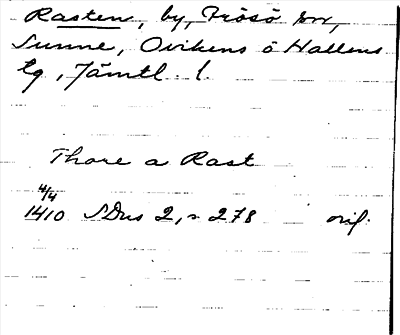 Rasten, by, Frösö sn,
Sunne, Ovikens o Hallens
tg, Jämtl. l.
Thore a Rast
4/4
1410 SDns 2, s 278 orig.